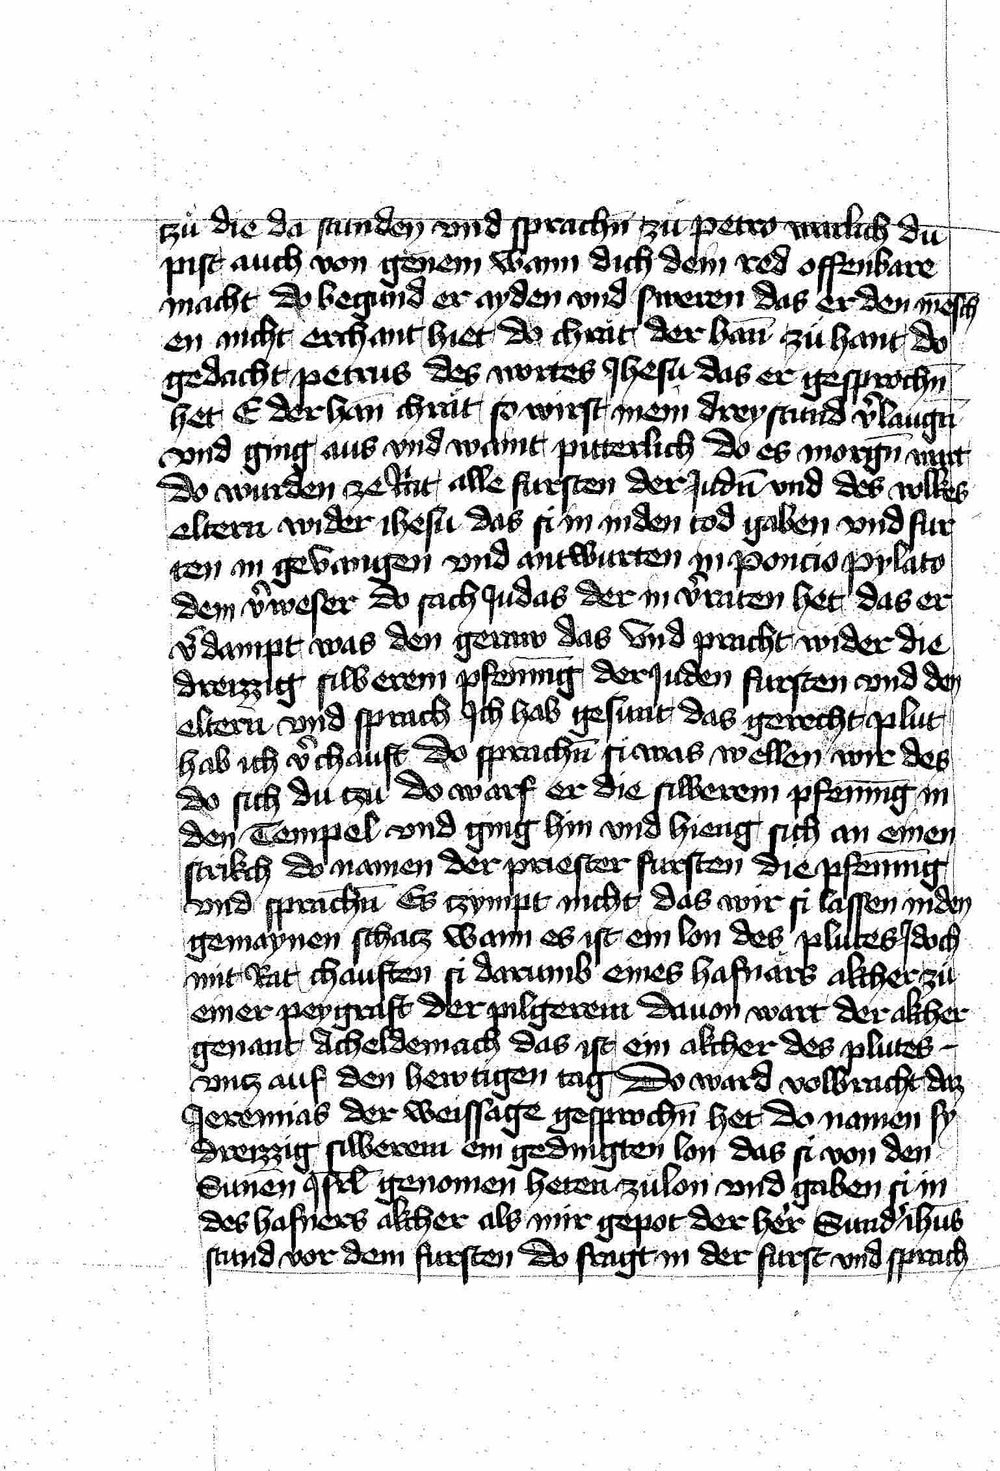 tzu die da stunden vnd sprachn̄ zu petro warlich du
pist auch von genem wann dich dein red offenbare
macht do begund er ayden vnd sweren das er den mēsch
en nicht erchant hiet do chrat der han zu hant do
gedacht petrus des wortes Jhesu das er gesprochn̄
het E der han chrät so wirst mein drey stund v̄laugn̄
vnd ging aus vnd waint pitterlich Do es morgn̄ wart
do wurden ze Rat alle fursten der Judn̄ vnd des volkes
eltern wider ihesu das si in inden tod gaben vnd fur
ten in gevangen vnd antwurten in poncio pylato
dem v̄weser Do sach Judas der in v̄raten het das er
v̄dampt was den geraw das vnd pracht wider die
dreizzig silberein pfenning der Juden fursten vnd den
eltern vnd sprach Ich hab gesunt das gerecht plut
hab ich v̄chauft Do sprachn̄ si was wellen wir des
do sich du tzu Do warf er die silberein pfenning in
den Tempel vnd ging hin vnd hieng sich an einen
strikch do namen der priester fursten die pfenning
vnd sprachn̄ Es tzympt nicht das wir si lassen inden
gemaynen schatz wann es ist ein lon des plutes Jdoch
mit Rat chauften si darumb eines hafnärs akcher zu
einer peygraft der pilgerein davon wart der akcher
genant Acheldemach das ist ein akcher des plutes -
vntz auf den hewtigen tag Do ward volbracht daz
Jeremias der weissage gesprochn̄ het do namen sy
dreizzig silberein ein gedingten lon das si von den
Sunen Isrl̄ genomen heten zu lon vnd gaben si in
des hafners akcher als mir gepot der her Sund' ihūs
stund vor dem fursten Do fragt in der furst vnd sprach